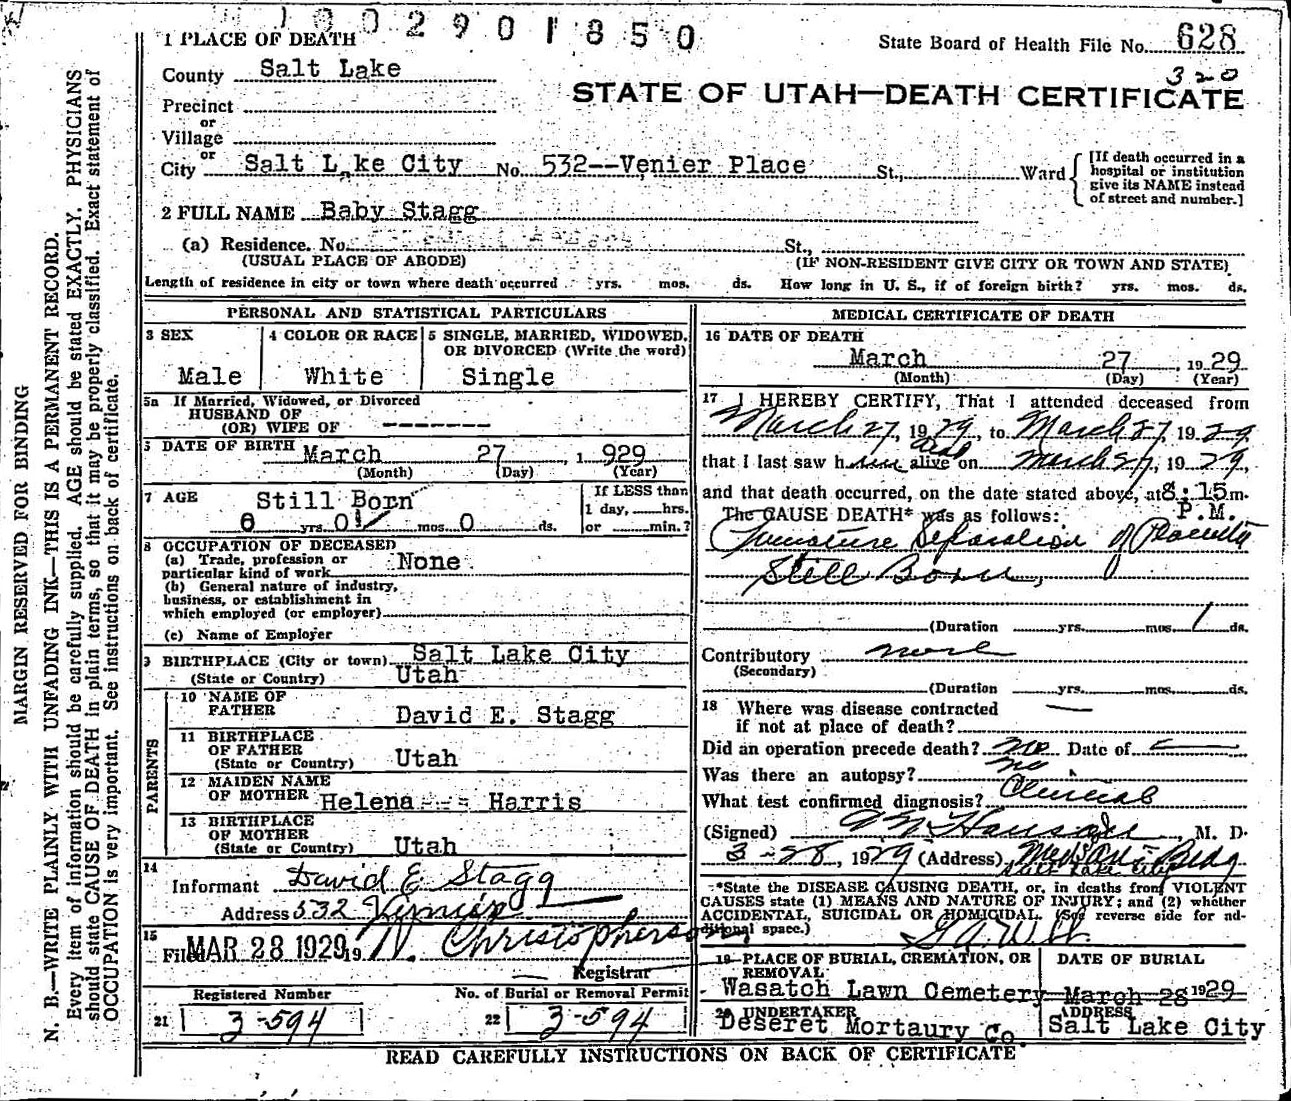 1002901850
1 PLACE OF DEATH
State Board of Health File No. 628
County Salt Lake
320
STATE OF UTAH—DEATH CERTIFICATE
Precinct
or
Village
or
City Salt Lake City No. 532--Venier Place St., Ward
[If death occurred in a
hospital or institution
give its NAME instead
of street and number.]
2 FULL NAME Baby Stagg
(a) Residence. No. St.,
(USUAL PLACE OF ABODE) (IF NON-RESIDENT GIVE CITY OR TOWN AND STATE)
Length of residence in city or town where death occurred yrs. mos. ds. How long in U. S., if of foreign birth? yrs. mos. ds.
PERSONAL AND STATISTICAL PARTICULARS
3 SEX
Male
4 COLOR OR RACE
White
5 SINGLE, MARRIED, WIDOWED,
OR DIVORCED (Write the word)
Single
5a If Married, Widowed, or Divorced
HUSBAND OF
(OR) WIFE OF -------
6 DATE OF BIRTH March 27, 1929
(Month) (Day) (Year)
7 AGE Still Born
0 yrs. 0 mos. 0 ds.
If LESS than
1 day, hrs.
or min.?
8 OCCUPATION OF DECEASED
(a) Trade, profession or
particular kind of work None
(b) General nature of industry,
business, or establishment in
which employed (or employer)
(c) Name of Employer
9 BIRTHPLACE (City or town) Salt Lake City
(State or Country) Utah
PARENTS
10 NAME OF
FATHER David E. Stagg
11 BIRTHPLACE
OF FATHER
(State or Country) Utah
12 MAIDEN NAME
OF MOTHER Helena --- Harris
13 BIRTHPLACE
OF MOTHER
(State or Country) Utah
14
Informant David E Stagg
Address 532 Venier
15
Filed MAR 28 1929 19 N. Christopherson
Registrar
Registered Number
21 3-594
No. of Burial or Removal Permit
22 3-594
MEDICAL CERTIFICATE OF DEATH
16 DATE OF DEATH
March 27, 1929
(Month) (Day) (Year)
17 I HEREBY CERTIFY, That I attended deceased from
March 27, 1929, to March 27, 1929
dead
that I last saw him alive on March 27, 1929,
and that death occurred, on the date stated above, at 8:15 m.
P.M.
The CAUSE DEATH* was as follows:
Premature Separation of Placenta
Still Born,
(Duration yrs. mos. 1 ds.
Contributory none
(Secondary)
(Duration yrs. mos. ds.
18 Where was disease contracted
if not at place of death? —
Did an operation precede death? no Date of —
Was there an autopsy? no
What test confirmed diagnosis? Clinical
(Signed) M. D.
3-28, 1929 (Address) Bldg
Salt Lake City
*State the DISEASE CAUSING DEATH, or, in deaths from VIOLENT
CAUSES state (1) MEANS AND NATURE OF INJURY; and (2) whether
ACCIDENTAL, SUICIDAL OR HOMICIDAL. (See reverse side for ad-
ditional space.)
19 PLACE OF BURIAL, CREMATION, OR
REMOVAL
Wasatch Lawn Cemetery
DATE OF BURIAL
March 28 1929
20 UNDERTAKER
Deseret Mortaury Co.
ADDRESS
Salt Lake City
READ CAREFULLY INSTRUCTIONS ON BACK OF CERTIFICATE
MARGIN RESERVED FOR BINDING
N. B.—WRITE PLAINLY WITH UNFADING INK—THIS IS A PERMANENT RECORD.
Every item of information should be carefully supplied. AGE should be stated EXACTLY. PHYSICIANS
should state CAUSE OF DEATH in plain terms, so that it may be properly classified. Exact statement of
OCCUPATION is very important. See instructions on back of certificate.